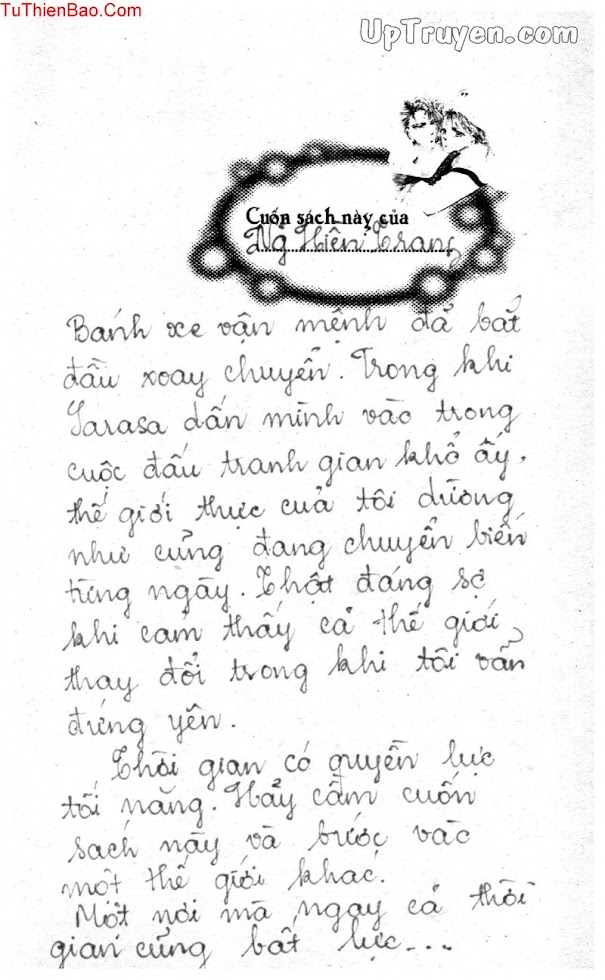 TuThienBao.Com
UpTruyen.com
Cuốn sách này của
Ng Hiền Trang
Bánh xe vận mệnh đã bắt
đầu xoay chuyển. Trong khi
Sarasa dấn mình vào trong
cuộc đấu tranh gian khổ ấy,
thế giới thực của tôi dường
như cũng đang chuyển biến
từng ngày. Thật đáng sợ
khi cảm thấy cả thế giới
thay đổi trong khi tôi vẫn
đứng yên.
Thời gian có quyền lực
tối năng. Hãy cầm cuốn
sách này và bước vào
một thế giới khác.
Một nơi mà ngay cả thời
gian cũng bất lực...